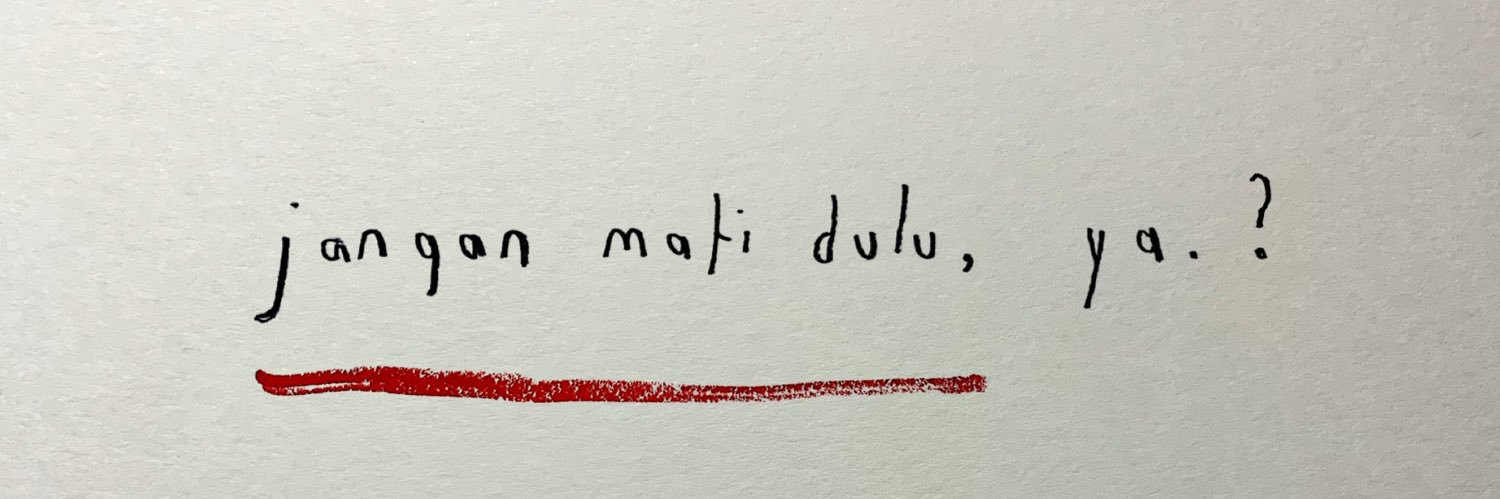 jangan mati dulu, ya.?